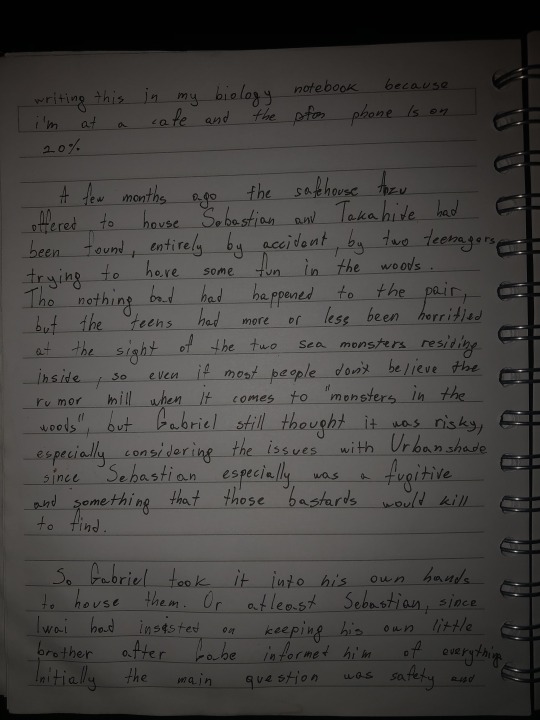 writing this in my biology notebook because
i'm at a cafe and the phone is on
20%
A few months ago the safehouse Azu
offered to house Sebastian and Takahide had
been found, entirely by accident, by two teenagers
trying to have some fun in the woods.
Tho nothing bad had happened to the pair,
but the teens had more or less been horrified
at the sight of the two sea monsters residing
inside, so even if most people don't believe the
rumor mill when it comes to "monsters in the
woods", but Gabriel still thought it was risky,
especially considering the issues with Urbanshade
since Sebastian especially was a fugitive
and something that those bastards would kill
to find.
So Gabriel took it into his own hands
to house them. Or atleast Sebastian, since
Iwai had insisted on keeping his own little
brother after Gabe informed him of everything.
Initially the main question was safety and